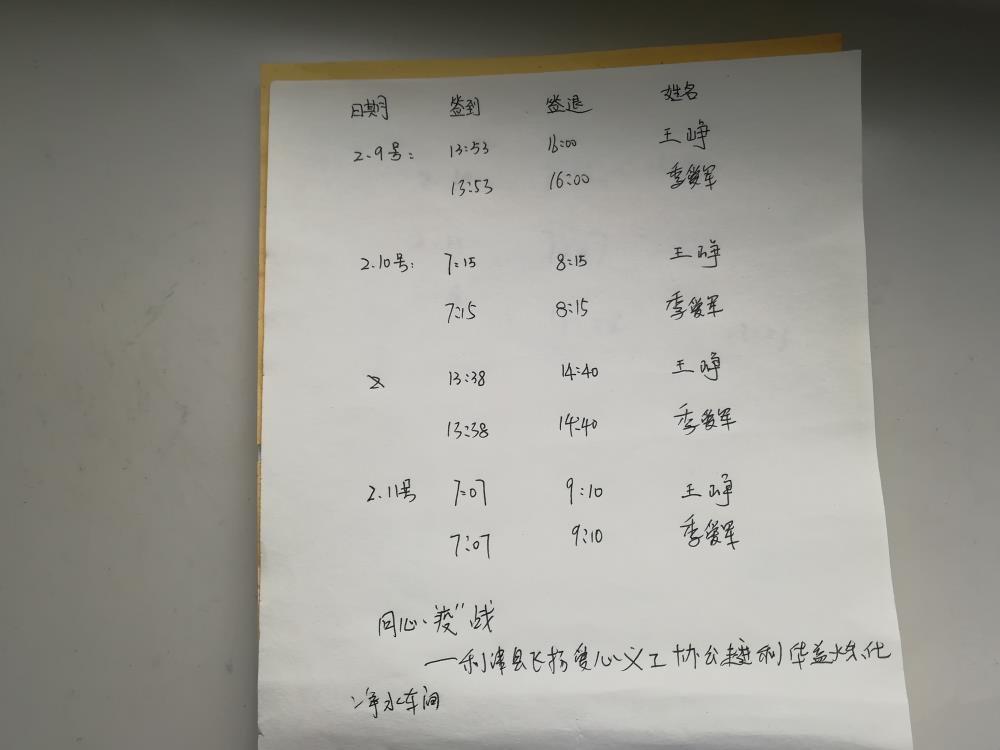 日期 签到 签退 姓名
2.9号: 13:53 16:00 王峥
13:53 16:00 季爱军
2.10号: 7:15 8:15 王峥
7:15 8:15 季爱军
13:38 14:40 王峥
13:38 14:40 季爱军
2.11号 7:07 9:10 王峥
7:07 9:10 季爱军
同心“疫”战
——利津县飞扬爱心义工协会 利华益 化
净水车间